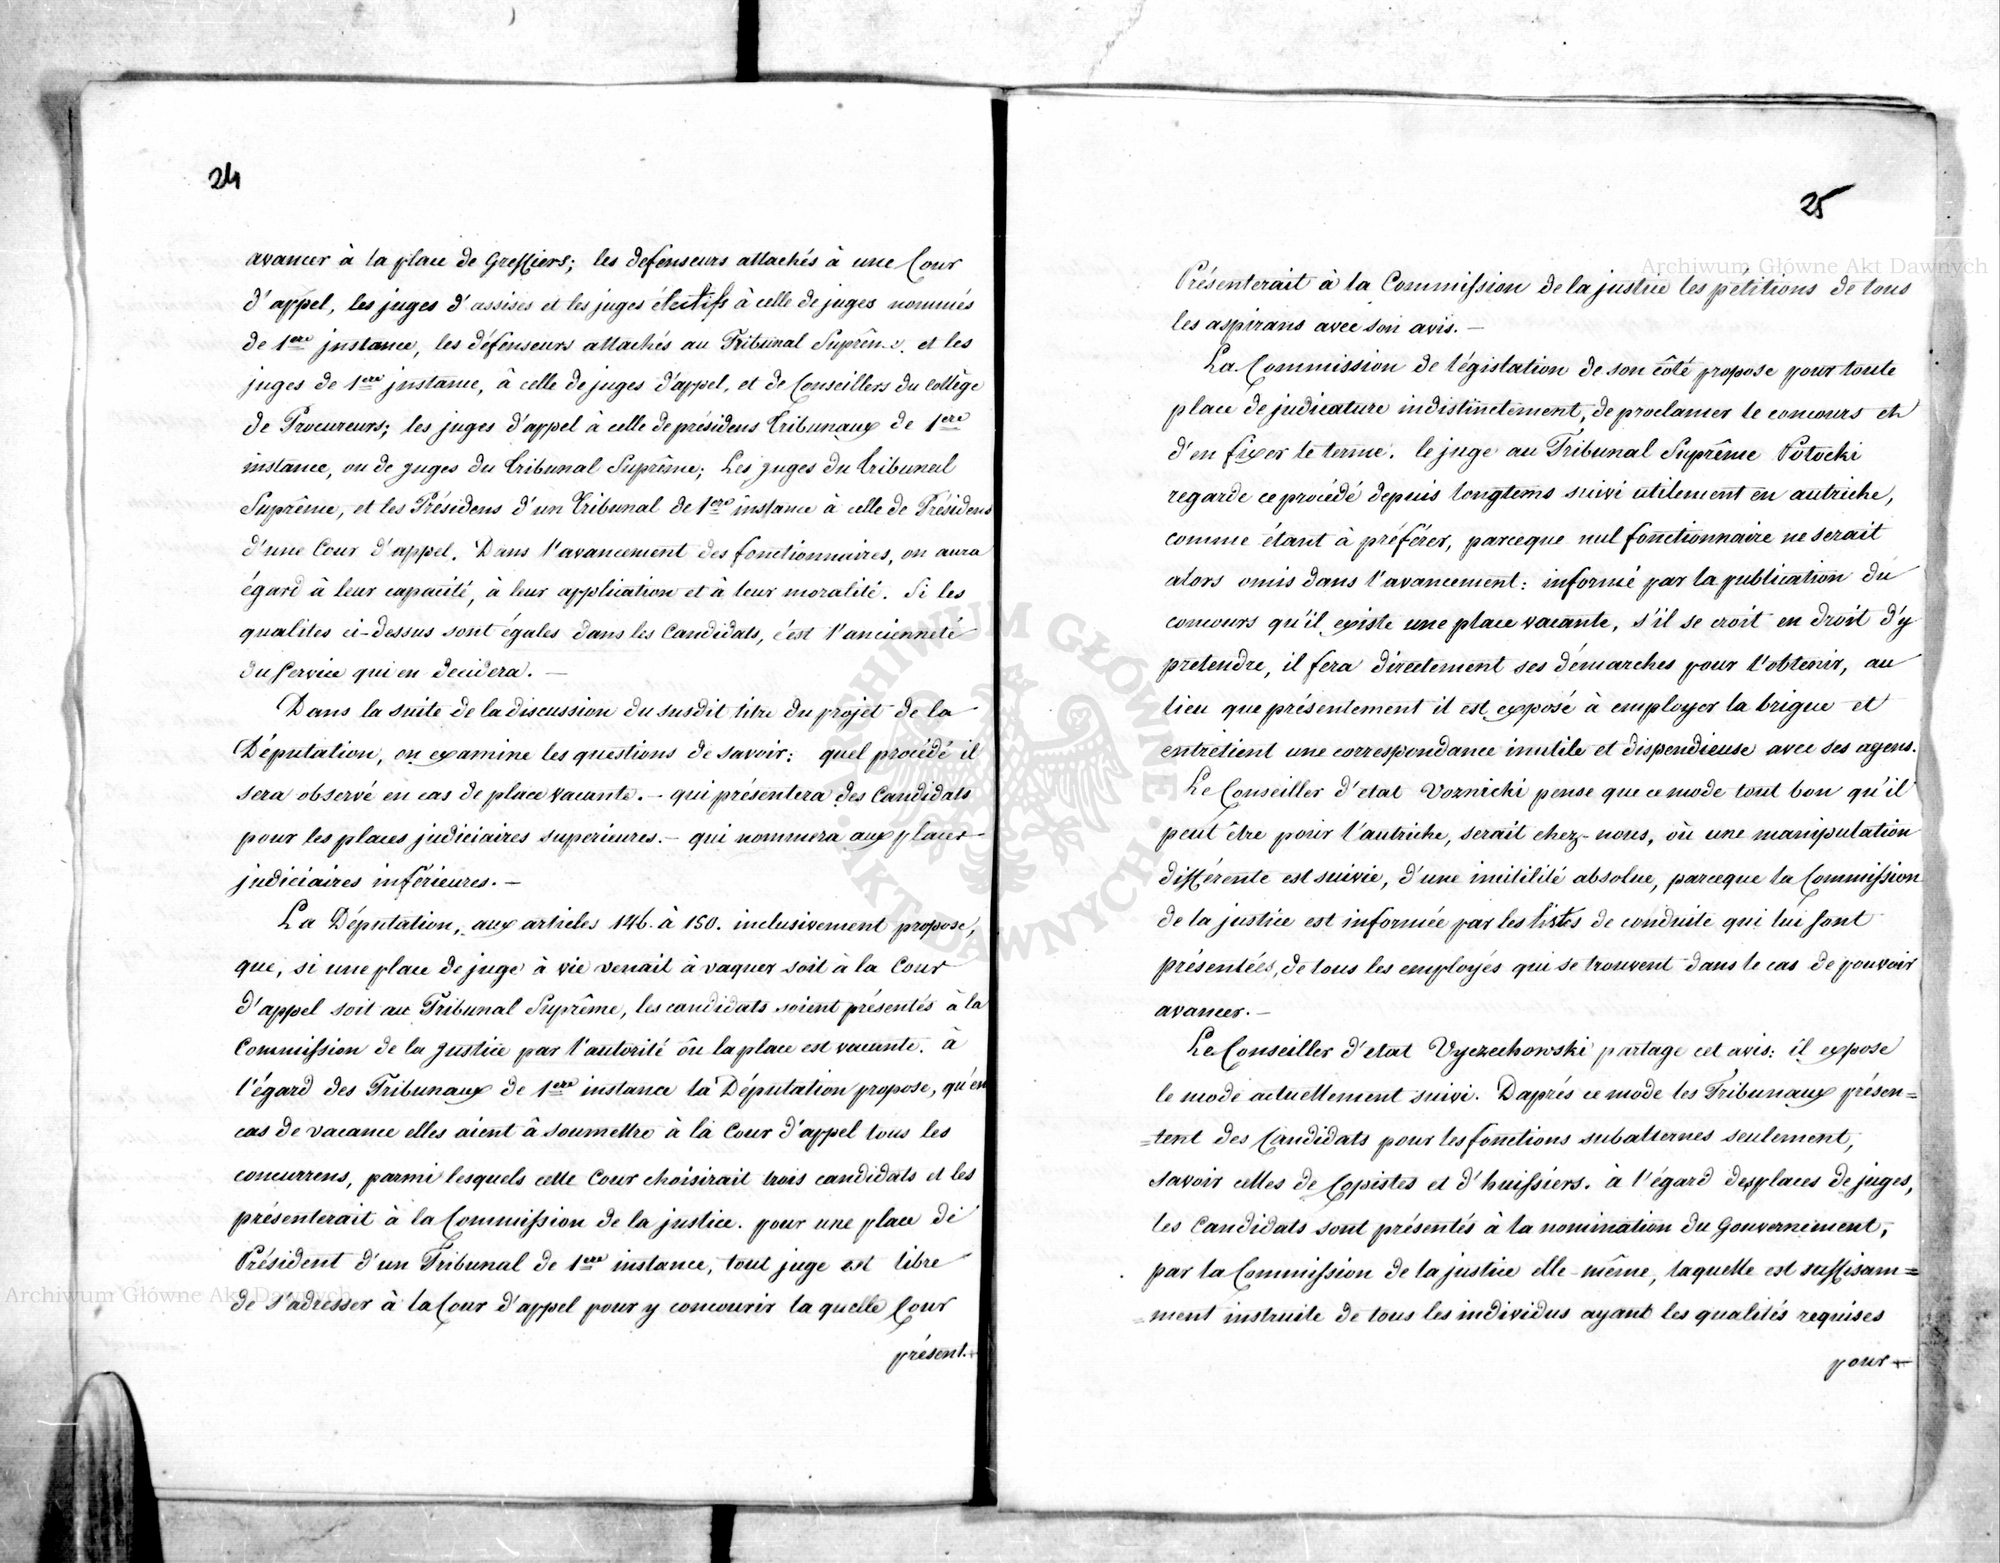 24
avancer à la place de Greffiers; les defenseurs attachés à une Cour
d'appel, les juges d'assises et les juges électifs à celle de juges nommés
de 1ere instance, les défenseurs attachés au Tribunal Suprême, et les
juges de 1ere instance, à celle de juges d'appel, et de Conseillers du collège
de Procureurs; les juges d'appel à celle de présidens tribunaux de 1ere
instance, ou de juges du tribunal Suprême; Les juges du tribunal
Suprême, et les Présidens d'un tribunal de 1ere instance à celle de Présidens
d'une Cour d'appel. Dans l'avancement des fonctionnaires, on aura
égard à leur capacité, à leur application et à leur moralité. Si les
qualités ci-dessus sont égales dans les Candidats, c'est l'ancienneté
du service qui en decidera. —
Dans la suite de la discussion du susdit titre du projet de la
Députation, on examine les questions de savoir: quel procédé il
sera observé en cas de place vacante. — qui présentera des Candidats
pour les places judiciaires superieures. — qui nommera aux places
judiciaires inférieures. —
La Députation, aux articles 146. à 150. inclusivement propose,
que, si une place de juge à vie venait à vaquer soit à la Cour
d'appel soit au Tribunal Suprême, les candidats soient présentés à la
Commission de la Justice par l'autorité où la place est vacante. à
l'égard des Tribunaux de 1ere instance la Députation propose, qu'en
cas de vacance elles aient à soumettre à la Cour d'appel tous les
concurrens, parmi lesquels cette Cour choisirait trois candidats et les
présenterait à la Commission de la justice. pour une place de
Président d'un Tribunal de 1ere instance, tout juge est libre
de s'adresser à la Cour d'appel pour y concourir la quelle Cour
présent.
25
Présenterait à la Commission de la justice les pétitions de tous
les aspirans avec son avis. —
La Commission de législation de son côté propose pour toute
place de judicature indistinctement, de proclamer le concours et
d'en fixer le terme. le juge au Tribunal Suprême Potocki
regarde ce procédé depuis longtems suivi utilement en autriche,
comme étant à préférer, parceque nul fonctionnaire ne serait
alors omis dans l'avancement: informé par la publication du
concours qu'il existe une place vacante, s'il se croit en droit d'y
pretendre, il fera directement ses démarches pour l'obtenir, au
lieu que présentement il est exposé à employer la brigue et
entretient une correspondance inutile et dispendieuse avec ses agens.
Le Conseiller d'etat Voznicki pense que ce mode tout bon qu'il
peut être pour l'autriche, serait chez-nous, où une manipulation
différente est suivie, d'une inutilité absolue, parceque la Commission
de la justice est informée par les listes de conduite qui lui sont
présentées, de tous les employés qui se trouvent dans le cas de pouvoir
avancer. —
Le Conseiller d'etat Vyczechowski partage cet avis: il expose
le mode actuellement suivi. Daprés ce mode les Tribunaux présen=
=tent des Candidats pour les fonctions subalternes seulement,
savoir celles de Copistes et d'huissiers. à l'égard des places de juges,
les Candidats sont présentés à la nomination du Gouvernement,
par la Commission de la justice elle-même, laquelle est suffisam=
=ment instruite de tous les individus ayant les qualités requises
pour
Archiwum Główne Akt Dawnych
Archiwum Główne Akt Dawnych
ARCHIWUM GŁÓWNE AKT DAWNYCH